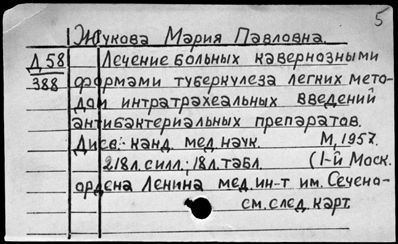 5
Жукова Мария Павловна.
Д 58 Лечение больных кавернозными
388 формами туберкулеза легких мето-
дом интратрахеальных введений
антибактериальных препаратов.
Дисс. канд. мед. наук. М, 1957.
218 л. силл.; 18 л. табл. (1-й Моск.
ордена Ленина мед. ин-т им. Сечено-
см. след. карт.